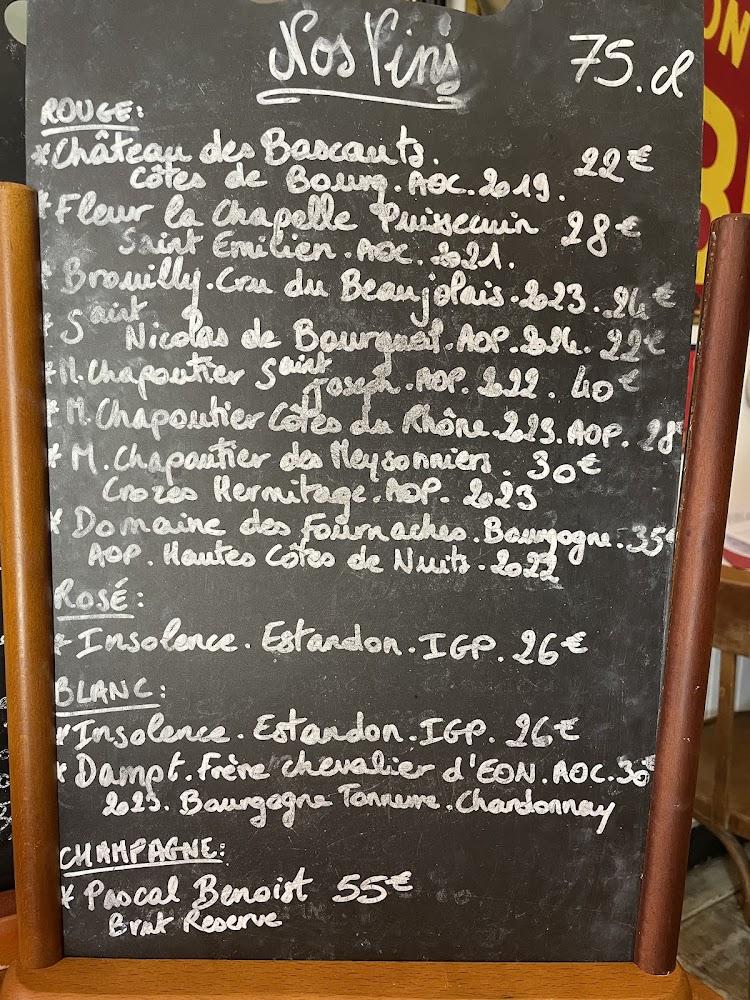 Nos Vins 75.cl
ROUGE:
*Château des Bascauts. 22€
Côtes de Bourg. AOC. 2019.
*Fleur la Chapelle Puissecuin 28€
Saint Emilien. AOC. 2021.
*Brouilly. Cru du Beaujolais. 2023. 24€
*Saint Nicolas de Bourgueil. AOP. 2024. 22€
*M. Chapoutier Saint Joseph. AOP. 2022. 40€
*M. Chapoutier Côtes du Rhône. 2023. AOP. 28
*M. Chapoutier des Meysonniers. 30€
Crozes Hermitage. AOP. 2023
*Domaine des Fournaches. Bourgogne. 35€
AOP. Hautes Côtes de Nuits. 2022
ROSÉ:
*Insolence. Estandon. IGP. 26€
BLANC:
*Insolence. Estandon. IGP. 26€
*Dampt. Frère chevalier d'EON. AOC. 30€
2023. Bourgogne Tonnerre. Chardonnay
CHAMPAGNE:
*Pascal Benoist 55€
Brut Reserve
ON